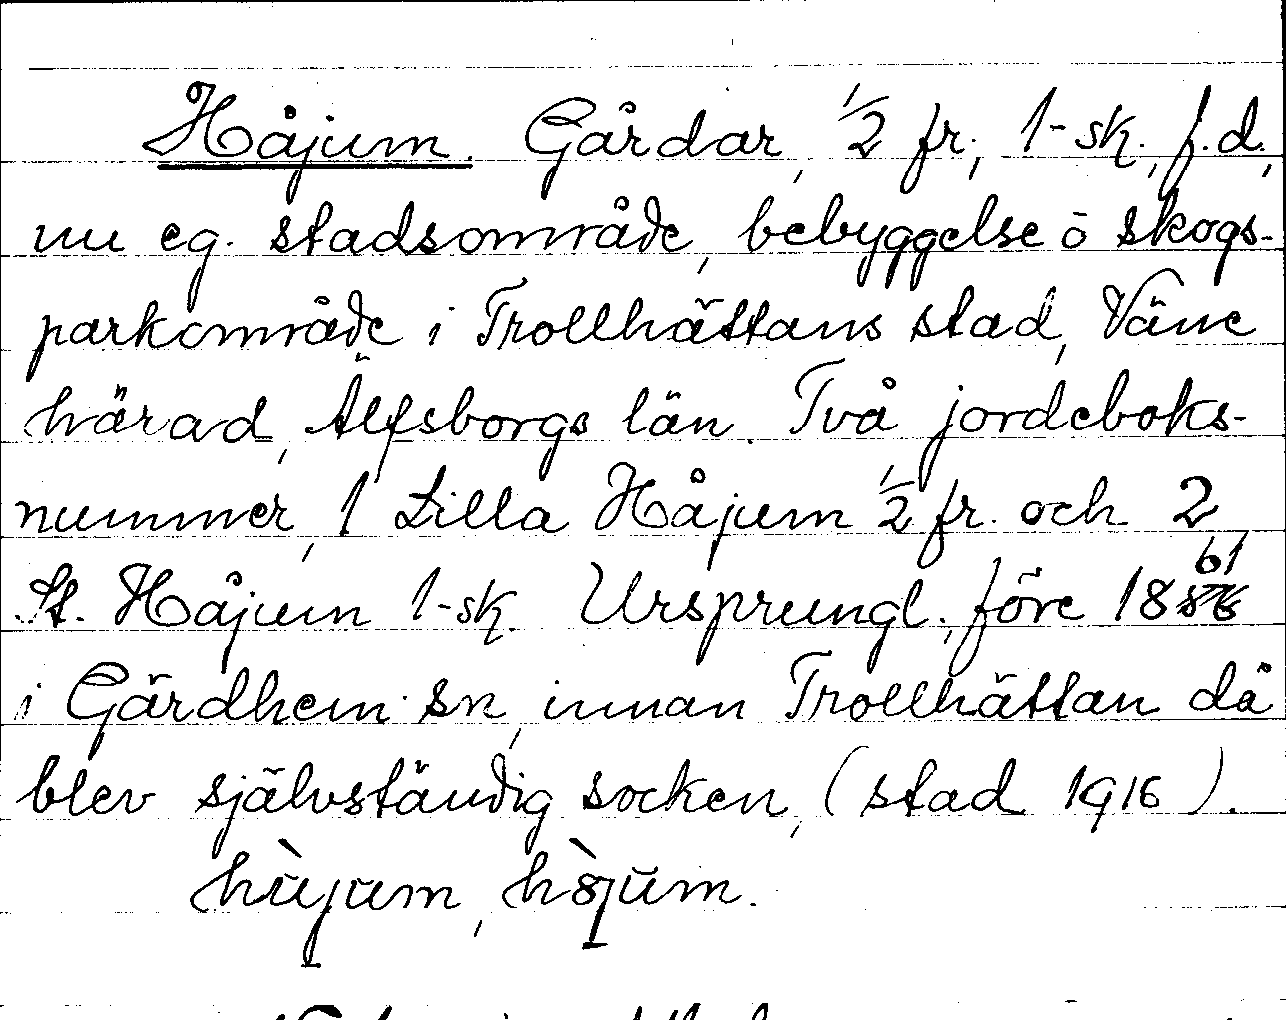 Håjum. Gårdar, 1/2 fr., 1-sk., f.d.,
nu eg. stadsområde, bebyggelse o skogs-
parkområde i Trollhättans stad, Väne
härad, Älfsborgs län. Två jordeboks-
nummer, 1 Lilla Håjum 1/2 fr. och 2
St. Håjum 1-sk. Ursprungl., före 1861
i Gärdhem sn, innan Trollhättan då
blev självständig socken, (stad 1916).